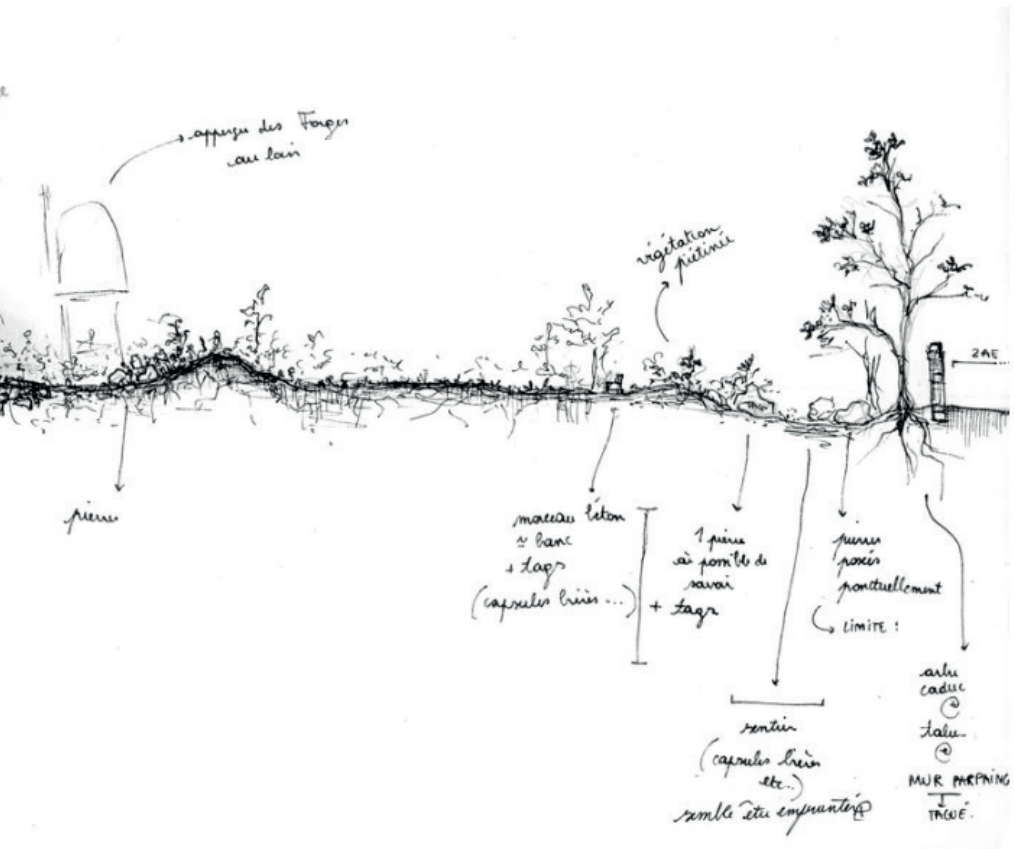 apperçu des Forges
au loin
végétation
piétinée
ZAE
pierre
morceau béton
≃ banc
+ tags
(capsules bières ...)
1 pierre
où possible de
savoir
+ tags
pierres
posées
ponctuellement
LIMITE !
sentier
(capsules bières
etc..)
semble être emprunté
arbre
caduc
@
talu
@
MUR PARPAING
TAGUÉ.